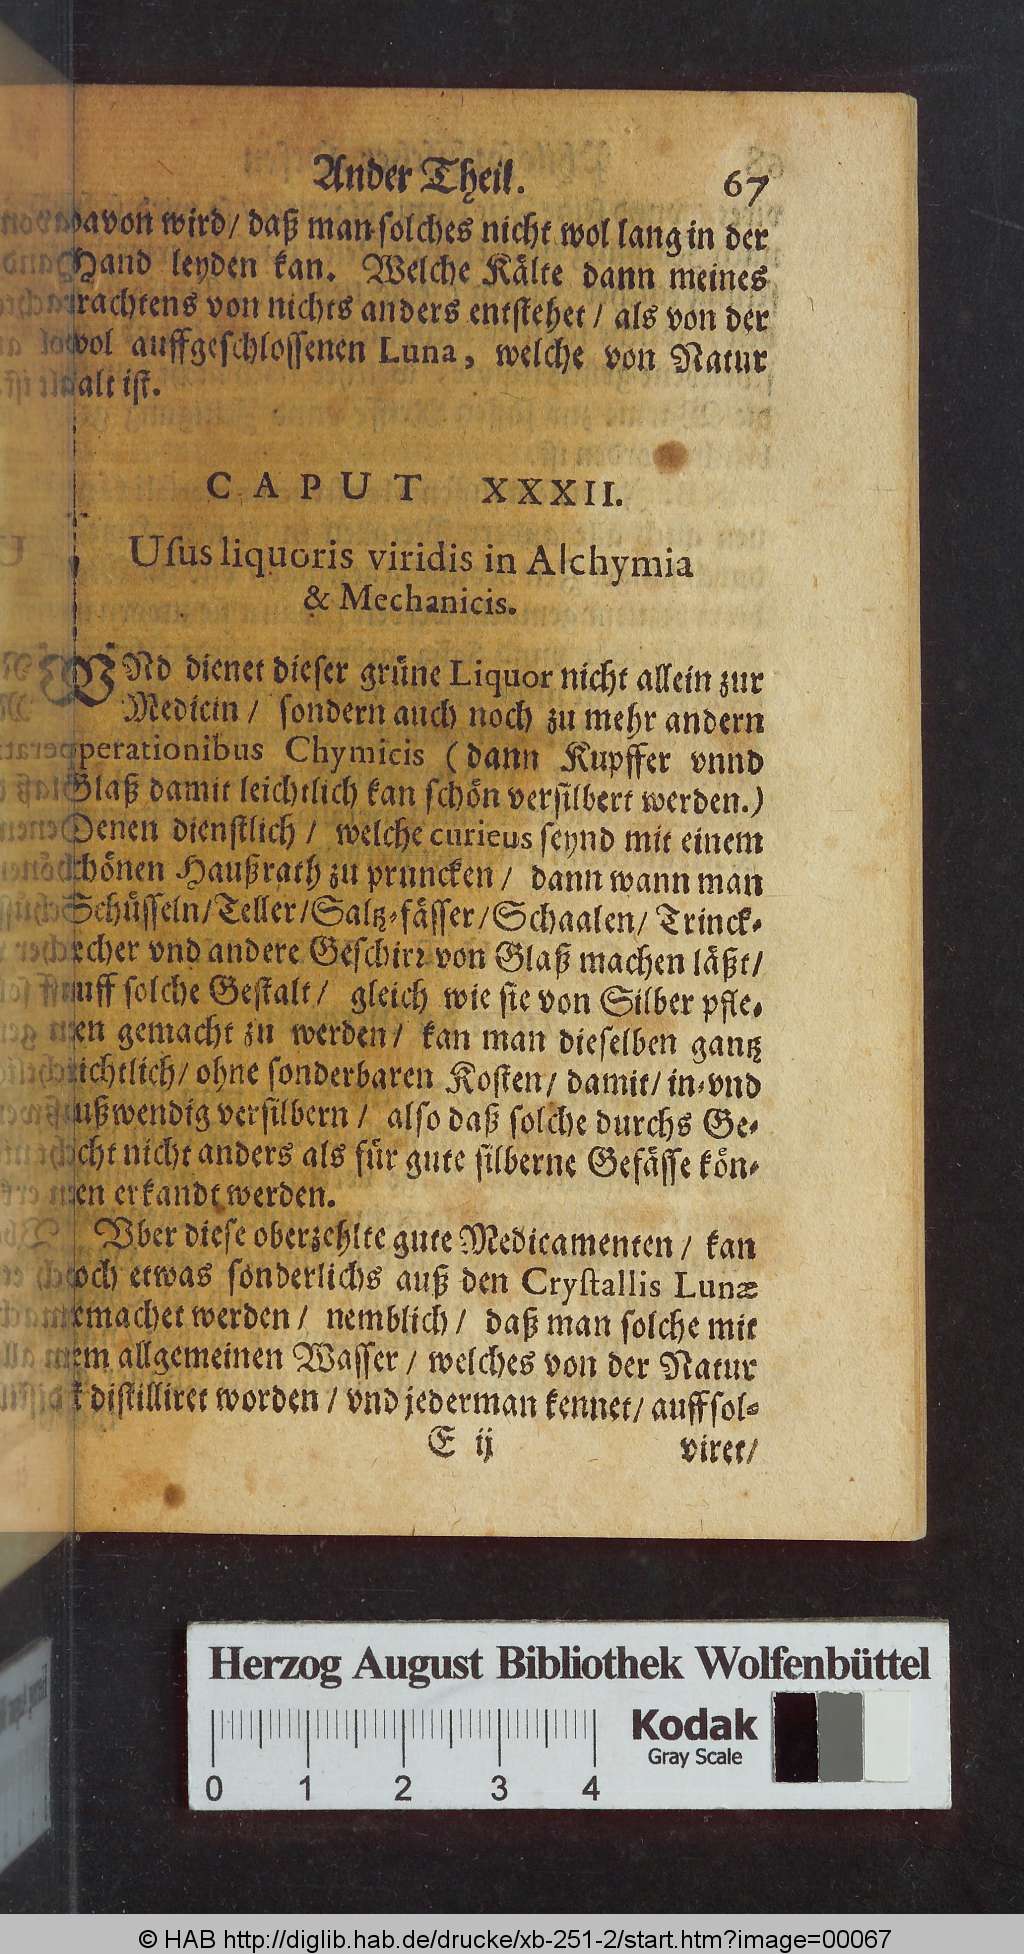 Ander Theil. 67
davon wird/ daß man solches nicht wol lang in der
Hand leyden kan. Welche Kälte dann meines
rachtens von nichts anders entstehet / als von der
wol auffgeschlossenen Luna, welche von Natur
kalt ist.
CAPUT XXXII.
Uſus liquoris viridis in Alchymia
& Mechanicis.
VNd dienet dieser grüne Liquor nicht allein zur
Medicin / sondern auch noch zu mehr andern
operationibus Chymicis (dann Kupffer vnnd
Glaß damit leichtlich kan schön versilbert werden.)
Denen dienstlich / welche curieus seynd mit einem
schönen Haußrath zu pruncken / dann wann man
Schüsseln/Teller/Saltz-fässer/Schaalen/ Trinck-
becher vnd andere Geschirr von Glaß machen läßt/
auff solche Gestalt / gleich wie sie von Silber pfle-
gen gemacht zu werden / kan man dieselben gantz
leichtlich/ ohne sonderbaren Kosten/ damit/ in-vnd
außwendig versilbern / also daß solche durchs Ge-
sicht nicht anders als für gute silberne Gefässe kön-
nen erkandt werden.
Vber diese oberzehlte gute Medicamenten / kan
noch etwas sonderlichs auß den Cryſtallis Lunæ
gemachet werden / nemblich / daß man solche mit
einem allgemeinen Wasser / welches von der Natur
distilliret worden / vnd jederman kennet/ auffsol-
E ij viret/
Herzog August Bibliothek Wolfenbüttel
Kodak
Gray Scale
0 1 2 3 4
© HAB http://diglib.hab.de/drucke/xb-251-2/start.htm?image=00067